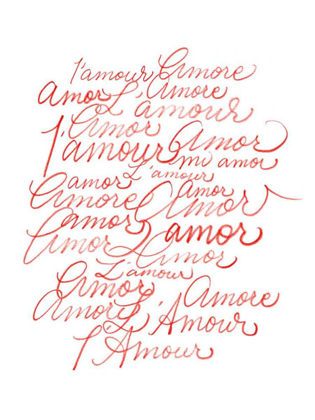 l'amour Amore
Amor L'Amore
L'amour
Amor
l'amour Amor
mi amor
L'amour
amor Amor
Amore Amor
amor
Amor L'Amor amor
L'amour
Amor Amore
Amor L'Amour
l'Amour